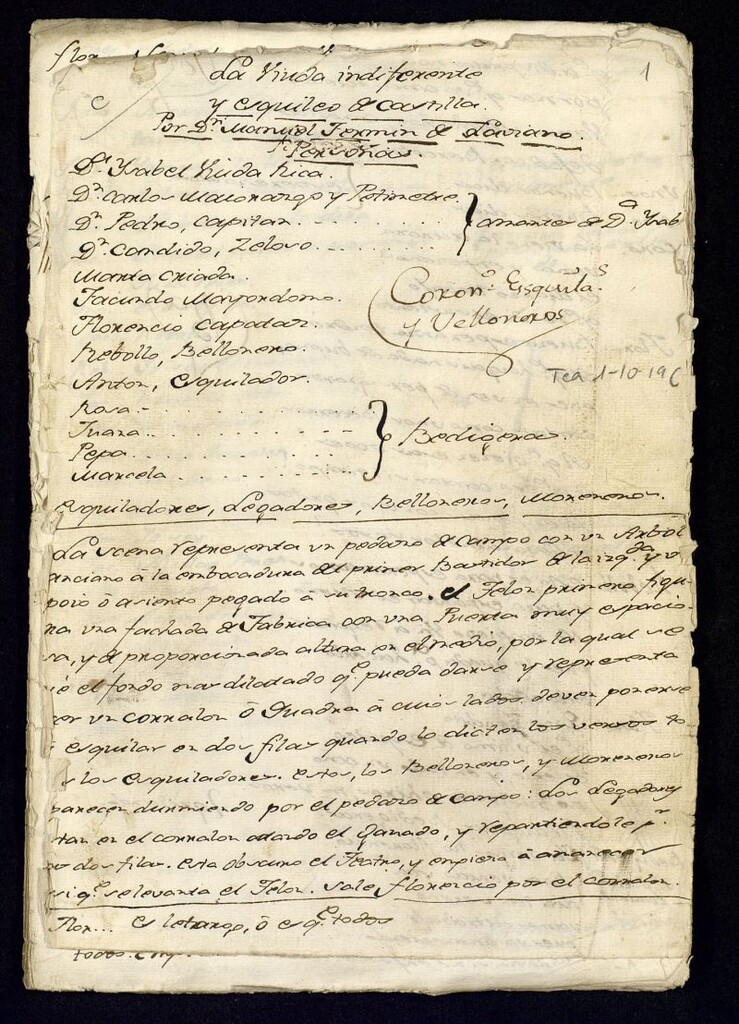 1
La Viuda indiferente
y esquileo de Castilla.
Por Dn. Manuel Fermin de Laviano.
Personas.
Da. Ysabel Viuda Rica.
Dn. Carlos Maiorazgo y Petimetre.
Dn. Pedro, Capitan. . . . . . amantes de Da. Ysab
Dn. Candido, Zeloso. . . . . . .
Marta Criada.
Facundo Mayordomo.
Coron.o Esquila.s
y Velloneros
Florencio Capataz.
Rebollo, Bellonero.
Anton, esquilador.
Tea 1-10-19
Rosa - . . . . . . .
Juana . . . . . . .
Pepa . . . . . . . Bedigeras.
Marcela . . . . . . .
esquiladores, Legadores, Belloneros, Moreneros.
La scena representa un pedazo de campo con un Arbol
anciano á la embocadura del primer Bastidor de la izqda. y u
poio ó asiento pegado á su tronco. el Telon primero figu
ra una fachada de Fabrica con una Puerta muy espacio
sa, y de proporcionada altura en el medio, por la qual se
el fondo mas dilatado qe. pueda darse y representa
ser un corralon ó Quadra á cuios lados deven ponerse
esquilar en dos filas quando lo dicten los versos to
s los esquiladores. estos, los Belloneros, y Moreneros
parecen durmiendo por el pedazo de campo: Los Legadores
tan en el corralon atando el Ganado, y repartiendole pr.
dos filas. esta obscuro el Teatro, y empieza á amanecer
si qe. se levanta el Telon. sale florencio por el corralon.
Flor... es letargo, ó es qe. todos